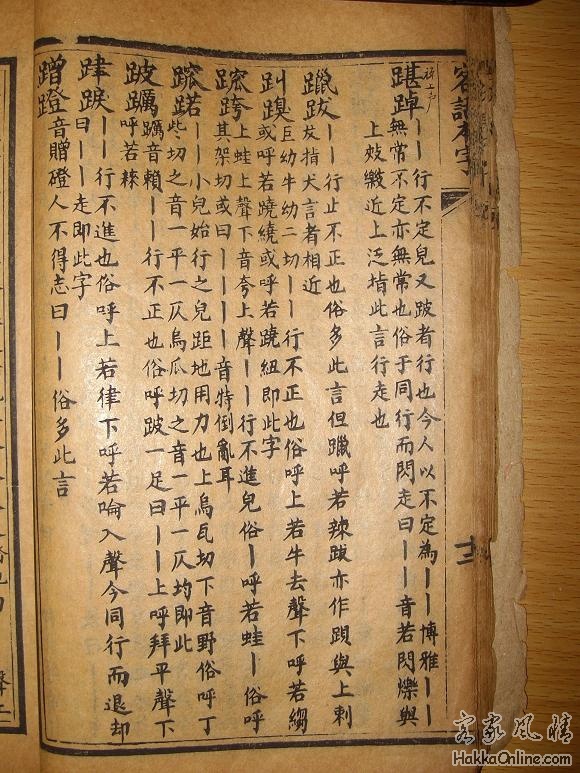 客話本字
十二
踸踔丨丨行不定皃又跛者行也今人以不定為丨丨博雅丨丨
無常不定亦無常也俗于同行而閃走曰丨丨音若閃爍與
上敁敠近上泛指此言行走也
躐跋丨丨行止不正也俗多此言但躐呼若辣跋亦作䟺與上剌
犮指犬言者相近
巨幼牛幼二切丨丨行不正也俗呼上若牛去聲下呼若縐
或呼若蹺繞或呼若蹺紐即此字
跨上蛙上聲下音夸上聲丨丨行不進皃俗丨呼若蛙丨俗呼
其架切或曰丨丨丨丨音特倒亂耳
丨丨小兒始行之皃距地用力也上烏瓦切下音野俗呼丁
些切之音一平一仄烏瓜切之音一平一仄均即此
跛躓音賴丨丨行不正也俗呼跛一足曰丨丨上呼拜平聲下
呼若䅘
丨丨行不進也俗呼上若律下呼若啱入聲今同行而退却
曰丨丨走即此字
蹭蹬音贈磴人不得志曰丨丨俗多此言
客家風情
HakkaOnline.com